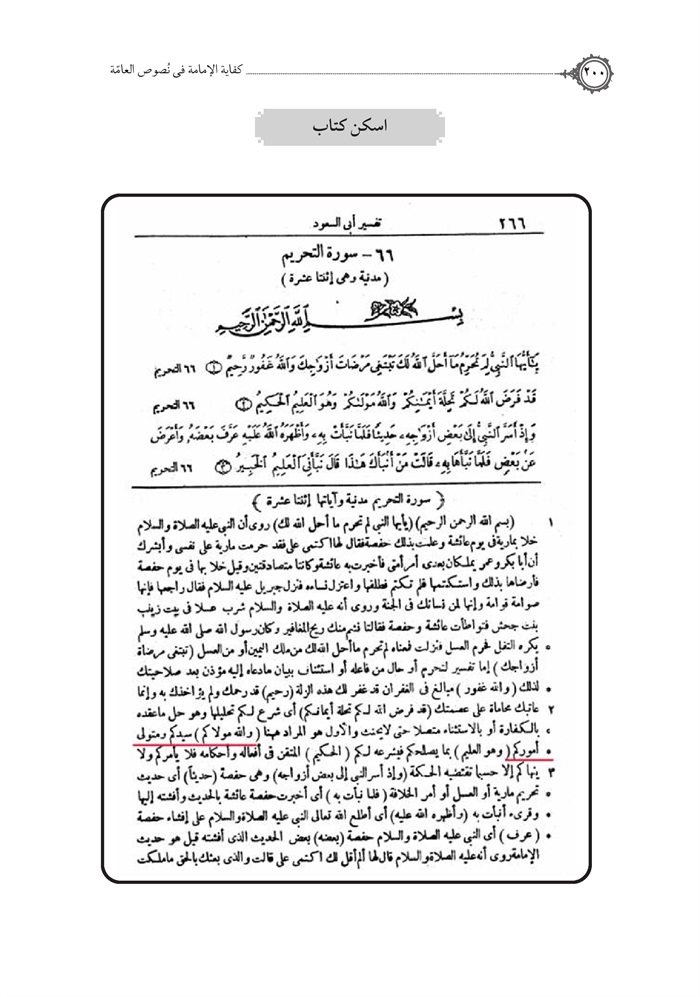 كفاية الإمامة فى نُصوص العامّة
٢٠٠
اسكن كتاب
تفسير أبى السعود
٢٦٦
٦٦ – سورة التحريم
( مدنية وهى إثنتا عشرة )
بِسْمِ اللَّهِ الرَّحْمَٰنِ الرَّحِيمِ
يَٰٓأَيُّهَا ٱلنَّبِىُّ لِمَ تُحَرِّمُ مَآ أَحَلَّ ٱللَّهُ لَكَ تَبْتَغِى مَرْضَاتَ أَزْوَٰجِكَ وَٱللَّهُ غَفُورٌ رَّحِيمٌ ﴿١﴾ ٦٦ التحريم
قَدْ فَرَضَ ٱللَّهُ لَكُمْ تَحِلَّةَ أَيْمَٰنِكُمْ وَٱللَّهُ مَوْلَىٰكُمْ وَهُوَ ٱلْعَلِيمُ ٱلْحَكِيمُ ﴿٢﴾ ٦٦ التحريم
وَإِذْ أَسَرَّ ٱلنَّبِىُّ إِلَىٰ بَعْضِ أَزْوَٰجِهِۦ حَدِيثًا فَلَمَّا نَبَّأَتْ بِهِۦ وَأَظْهَرَهُ ٱللَّهُ عَلَيْهِ عَرَّفَ بَعْضَهُۥ وَأَعْرَضَ
عَنۢ بَعْضٍ فَلَمَّا نَبَّأَهَا بِهِۦ قَالَتْ مَنْ أَنۢبَأَكَ هَٰذَا قَالَ نَبَّأَنِىَ ٱلْعَلِيمُ ٱلْخَبِيرُ ﴿٣﴾ ٦٦ التحريم
﴿ سورة التحريم مدنية وآياتها إثنتا عشرة ﴾
١ (بسم الله الرحمن الرحيم) (يأيها النبى لم تحرم ما أحل الله لك) روى أن النبى عليه الصلاة والسلام
خلا بمارية فى يوم عائشة وعلمت بذلك حفصة فقال لها اكتمى على فقد حرمت مارية على نفسى وأبشرك
أن أبا بكر وعمر يملكان بعدى أمر أمتى فأخبرت به عائشة وكانتا متصادقتين وقيل خلا بها فى يوم حفصة
فأرضاها بذلك واستكتمها فلم تكتم فطلقها واعتزل نساءه فنزل جبريل عليه السلام فقال راجعها فإنها
صوامة قوامة وإنها لمن نسائك فى الجنة وروى أنه عليه الصلاة والسلام شرب عسلا فى بيت زينب
بنت جحش فتواطأت عائشة وحفصة فقالتا نشم منك ريح المغافير وكان رسول الله صلى الله عليه وسلم
• يكره التفل فحرم العسل فنزلت فمعناه لم تحرم ما أحل الله لك من ملك اليمين أو من العسل ( تبتغى مرضاة
أزواجك ) إما تفسير لتحرم أو حال من فاعله أو استئناف ببيان ما دعاه إليه مؤذن بعد صلاحيتك
• لذلك ( والله غفور ) مبالغ فى الغفران قد غفر لك هذه الزلة (رحيم) قد رحمك ولم يؤاخذك به وإنما
٢ عاتبك محاماة على عصمتك (قد فرض الله لكم تحلة أيمانكم) أى شرع لكم تحليلها وهو حل ما عقده
• بالكفارة أو بالاستثناء متصلا حتى لا يحنث والأول هو المراد ههنا ( والله مولاكم ) سيدكم ومتولى
• أموركم ( وهو العليم ) بما يصلحكم فيشرعه لكم ( الحكيم ) المتقن فى أفعاله وأحكامه فلا يأمركم ولا
٣ ينهاكم إلا حسبما تقتضيه الحكمة (وإذ أسر النبى إلى بعض أزواجه) وهى حفصة (حديثا) أى حديث
• تحريم مارية أو العسل أو أمر الخلافة ( فلما نبأت به ) أى أخبرت حفصة عائشة بالحديث وأفشته إليها
• وقرىء أنبأت به (وأظهره الله عليه) أى أطلع الله تعالى النبى عليه الصلاة والسلام على إفشاء حفصة
• ( عرف ) أى النبى عليه الصلاة والسلام حفصة (بعضه) بعض الحديث الذى أفشته قيل هو حديث
الإمامة روى أنه عليه الصلاة والسلام قال لها ألم أقل لك اكتمى على قالت والذى بعثك بالحق ما ملكت